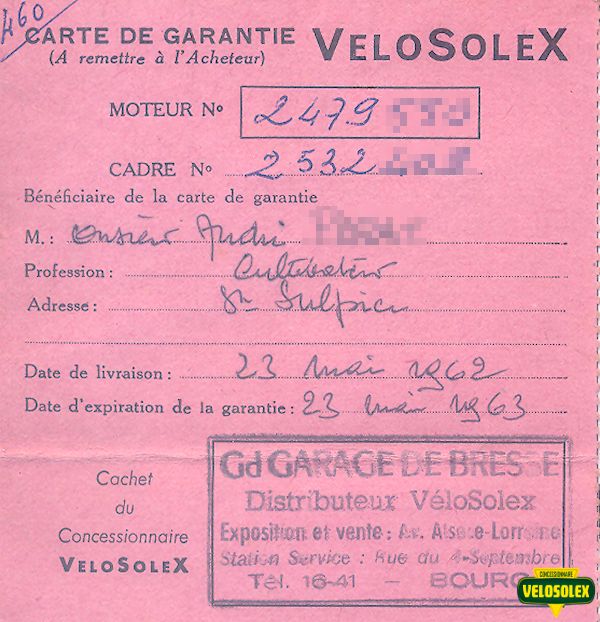 460
CARTE DE GARANTIE VELOSOLEX
(A remettre à l'Acheteur)
MOTEUR Nº 2479
CADRE Nº 2532
Bénéficiaire de la carte de garantie
M.: onsieur André
Profession : Cultivateur
Adresse : St Sulpice
Date de livraison : 23 mai 1962
Date d'expiration de la garantie : 23 mai 1963
Cachet
du
Concessionnaire
VELOSOLEX
Gd GARAGE DE BRESSE
Distributeur VéloSolex
Exposition et vente : Av. Alsace-Lorraine
Station Service : Rue du 4-Septembre
Tél. 16-41 — BOURG
CONCESSIONNAIRE
VELOSOLEX